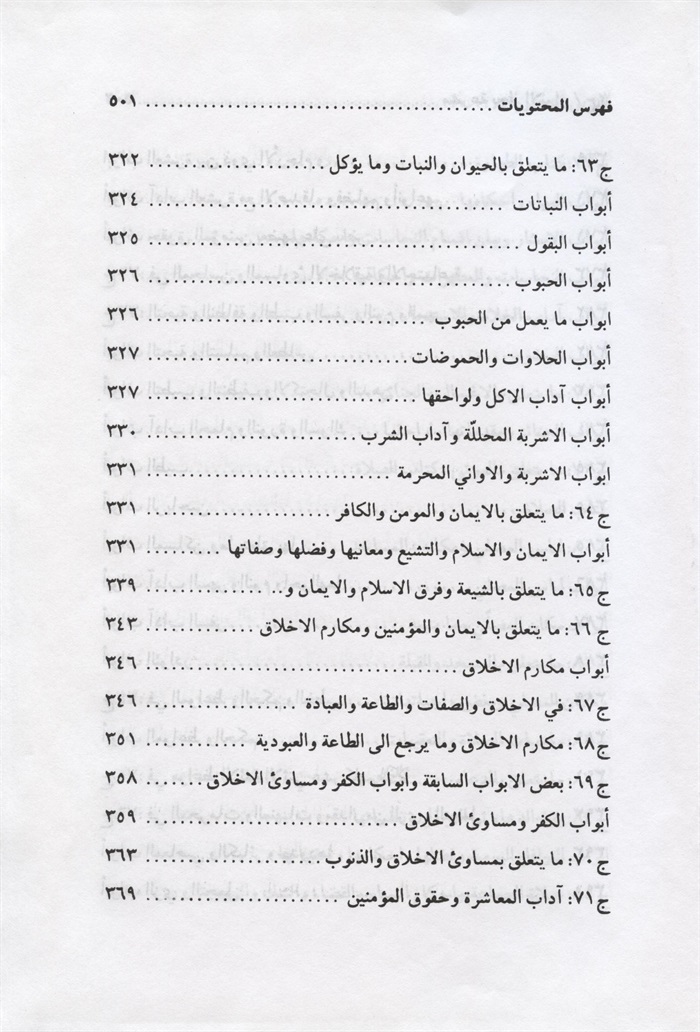 فهرس المحتويات ........................................ ٥٠١
ج٦٣: ما يتعلق بالحيوان والنبات وما يؤكل .................... ٣٢٢
أبواب النباتات ........................................ ٣٢٤
أبواب البقول ........................................ ٣٢٥
أبواب الحبوب ........................................ ٣٢٦
ابواب ما يعمل من الحبوب ........................................ ٣٢٦
أبواب الحلاوات والحموضات .............................. ٣٢٧
أبواب آداب الاكل ولواحقها .............................. ٣٢٧
أبواب الاشربة المحللّة وآداب الشرب .......................... ٣٣٠
ابواب الاشربة والاواني المحرمة .............................. ٣٣١
ج٦٤: ما يتعلق بالايمان والمومن والكافر ....................... ٣٣١
أبواب الايمان والاسلام والتشيع ومعانيها وفضلها وصفاتها ......... ٣٣١
ج٦٥: ما يتعلق بالشيعة وفرق الاسلام والايمان و................ ٣٣٩
ج٦٦: ما يتعلق بالايمان والمؤمنين ومكارم الاخلاق ............. ٣٤٣
أبواب مكارم الاخلاق ................................... ٣٤٦
ج٦٧: في الاخلاق والصفات والطاعة والعبادة .................. ٣٤٦
ج٦٨: مكارم الاخلاق وما يرجع الى الطاعة والعبودية ............ ٣٥١
ج٦٩: بعض الابواب السابقة وابواب الكفر ومساوئ الاخلاق ....... ٣٥٨
أبواب الكفر ومساوئ الاخلاق .............................. ٣٥٩
ج٧٠: ما يتعلق بمساوئ الاخلاق والذنوب ..................... ٣٦٣
ج٧١: آداب المعاشرة وحقوق المؤمنين ........................ ٣٦٩